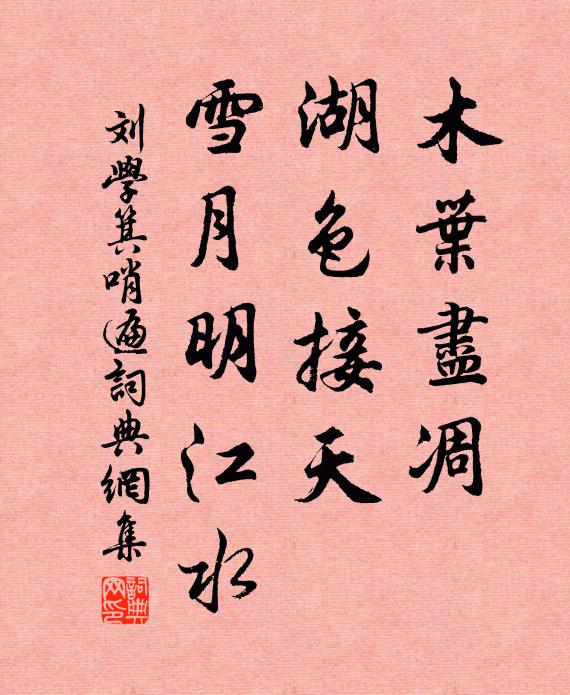 木葉盡凋
湖色接天
雪月明江水
刘學箕哨遍詞典網集
詞典网印